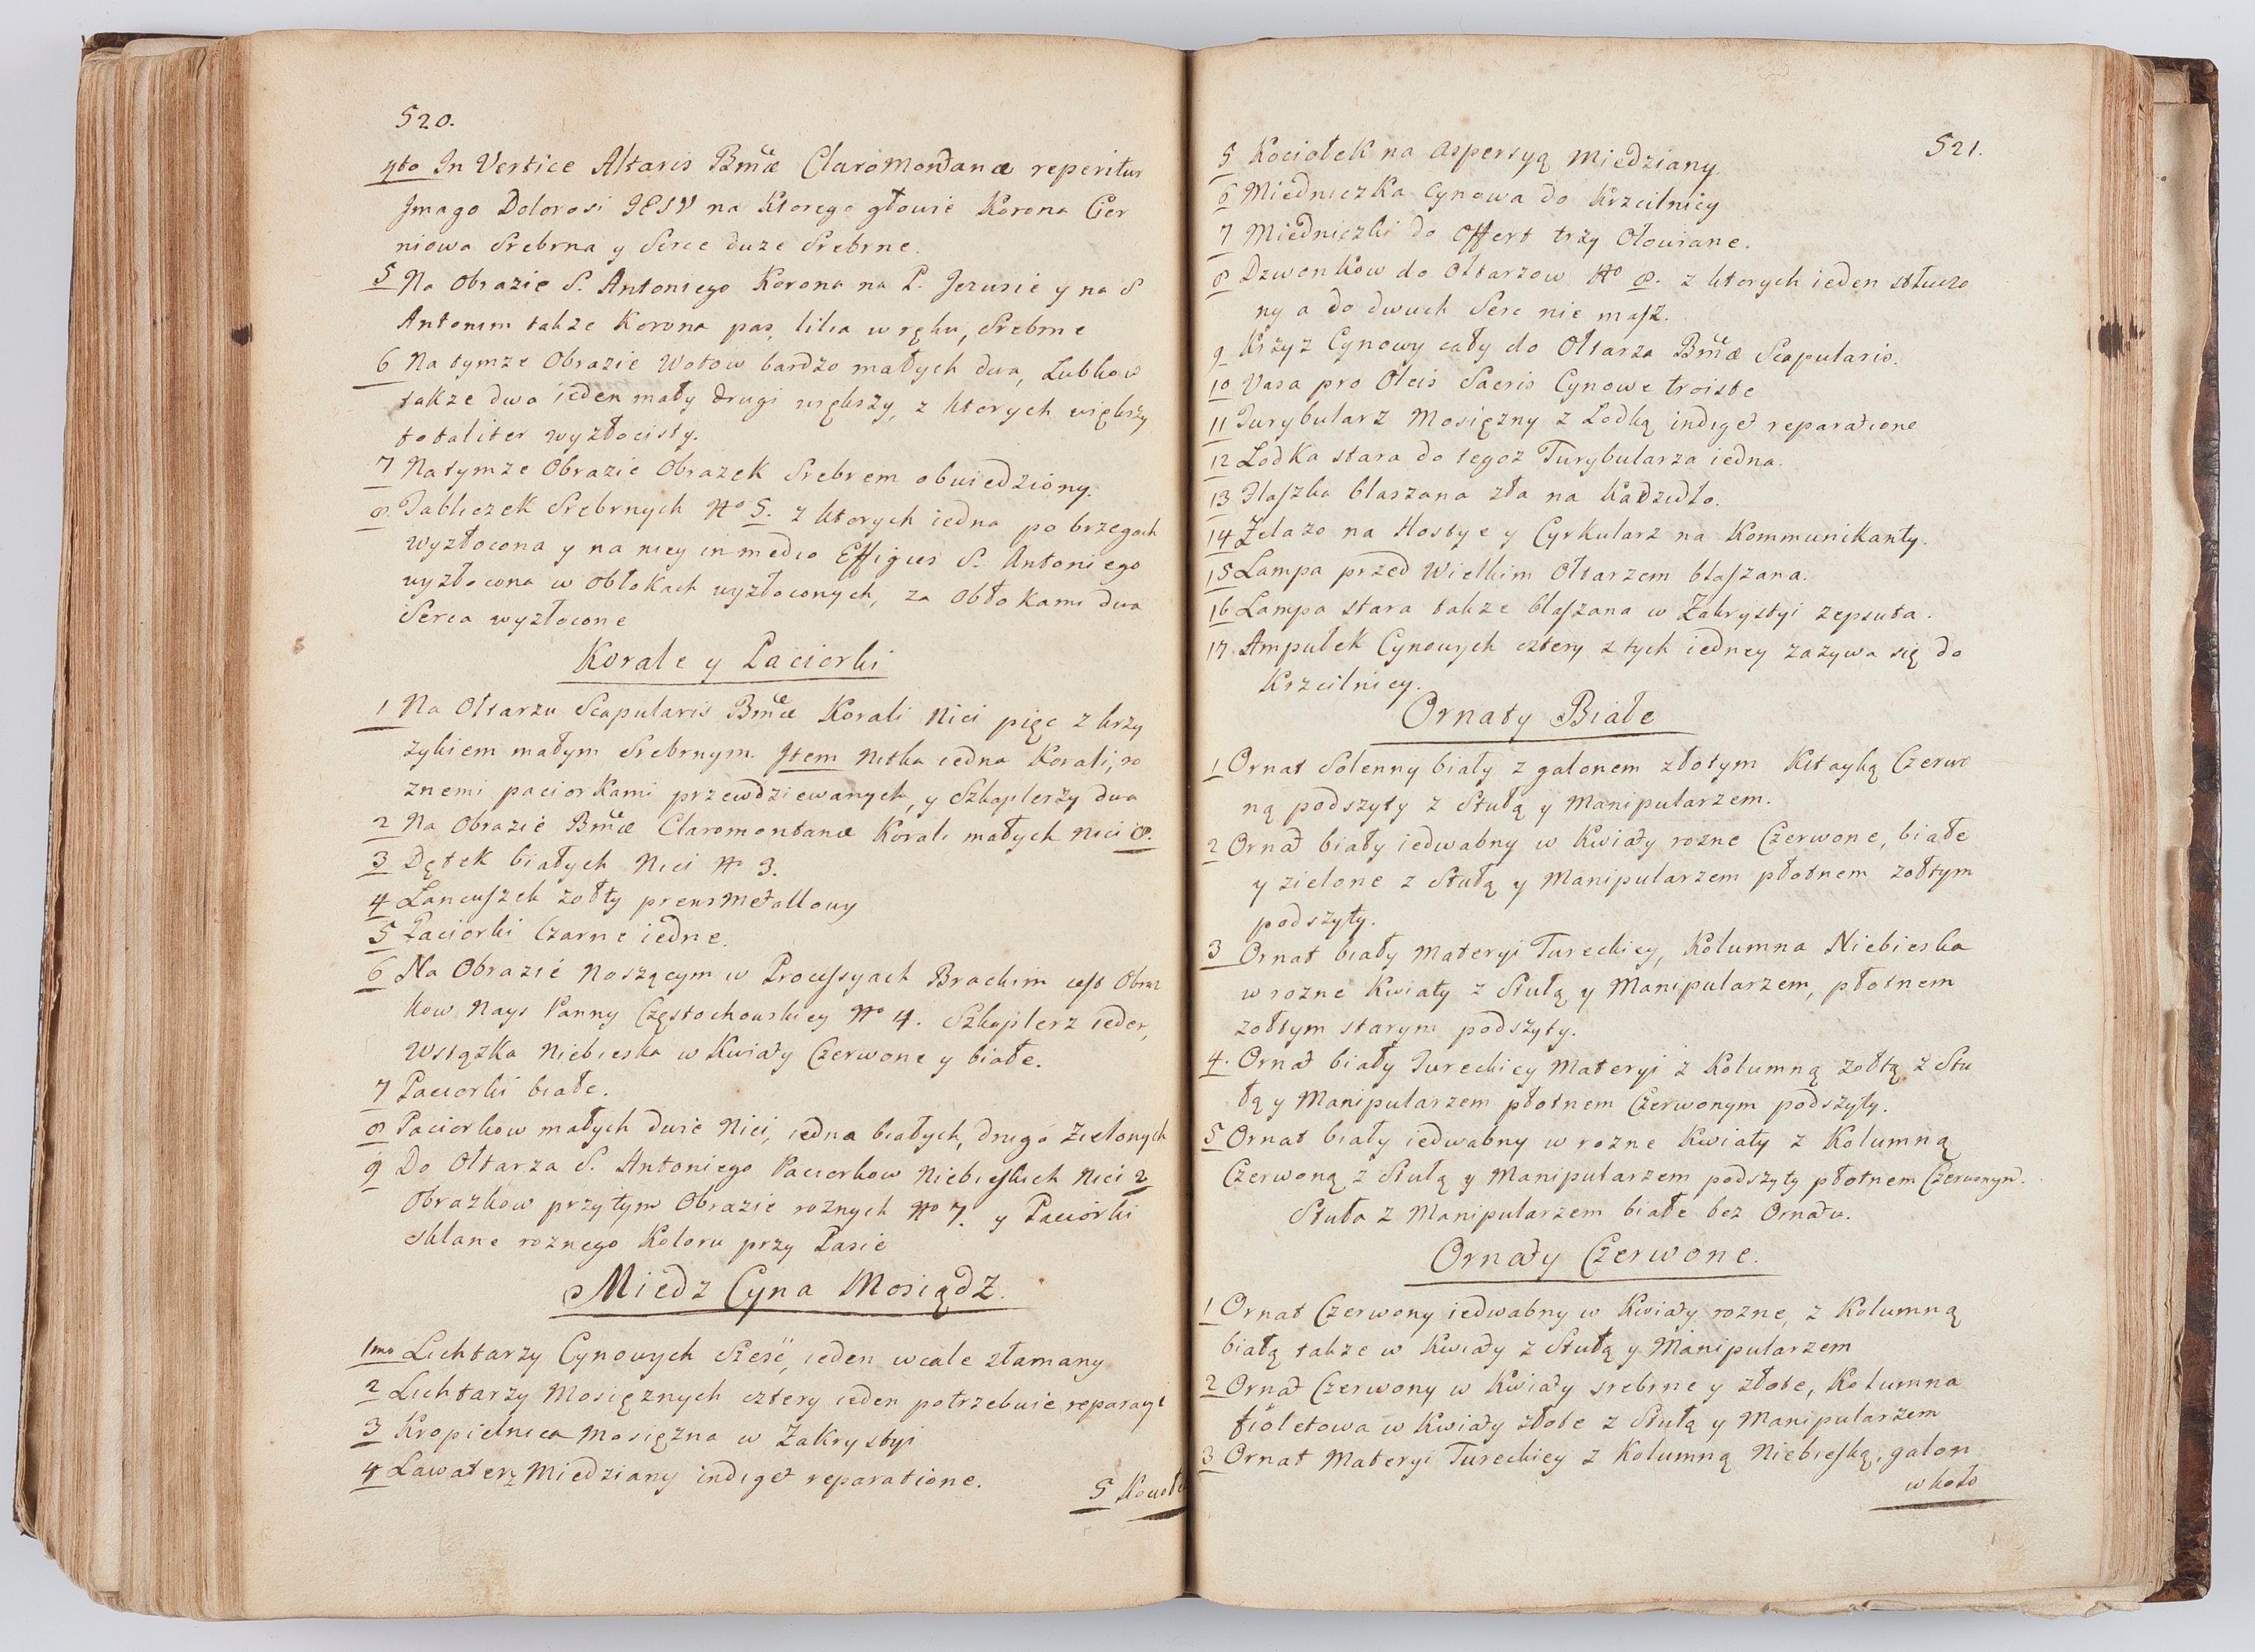 520.
4to In Vertice Altaris Bmæ Claromondanæ reperitur
Jmago Dolorosi JESV na ktorego głowie Korona Cier
niowa Srebrna y Serce duze Srebrne.
5 Na Obrazie S. Antoniego Korona na P. Jezusie y na S
Antonim takze Korona pas, lilia w ręku, Srebrne
6 Na tymze Obrazie Wotow bardzo małych dwa, Lubkow
takze dwa ieden mały drugi większy, z ktorych większy
totaliter wyzłocisty.
7 Na tymze Obrazie Obrazek Srebrem obwiedziony.
8. Tabliczek Srebrnych No 5. z ktorych iedna po brzegach
wyzłocona y na niey in medio Effigies S. Antoniego
wyzłocona w Obłokach wyzłoconych, za Obłokami dwa
Serca wyzłocone
Korale y Paciorki
1 Na Ołtarzu Scapularis Bmæ Korali Nici pięc z krzy
zykiem małym Srebrnym. Jtem Nitka iedna Korali, ro
znemi paciorkami przewdziewanych, y Szkaplerzy dwa
2 Na Obrazie Bmæ Claromontanæ Korali małych nici 8.
3 Dętek białych Nici No 3.
4 Lancuszek żołty prensmetallowy
5 Paciorki Czarne iedne.
6 Na Obrazie Noszącym w Processyach Brackim iest Obraz
kow Nays Panny Częstochowskiey No 4. Szkaplerz ieden,
Wstązka Niebieska w Kwiaty Czerwone y białe.
7 Paciorki białe.
8 Paciorkow małych dwie Nici, iedna białych, druga Zielonych
9 Do Ołtarza S. Antoniego Paciorkow Niebieskich Nici 2
Obrazkow przy tym Obrazie roznych No 7. y Paciorki
sklane roznego Koloru przy Pasie
Miedz Cyna Mosiądz.
1mo Lichtarzy Cynowych Sześć, ieden wcale złamany
2 Lichtarzy Mosięznych cztery ieden potrzebuie reparacyi
3 Kropielnica Mosięzna w Zakrystyi
4 Lawaterz Miedziany indiget reparatione.
5 Kociołe
521.
5 Kociołek na Aspersyą Miedziany.
6 Miedniczka Cynowa do Krzcilnicy
7 Miedniczki do Offert trzy Ołowiane.
8 Dzwonkow do Ołtarzow No 8. z ktorych ieden stłuczo
ny a do dwuch Serc nie masz.
9 Krzyz Cynowy cały do Ołtarza Bmæ Scapularis.
10 Vasa pro Oleis Sacris Cynowe troiste
11 Turybularz Mosięzny z Lodką indiget reparatione
12 Lodka stara do tegoz Turybularza iedna.
13 Flaszka blaszana zła na Kadzidło.
14 Zelazo na Hostye y Cyrkularz na Kommunikanty.
15 Lampa przed Wielkim Ołtarzem blaszana.
16 Lampa stara takze blaszana w Zakrystyi zepsuta.
17. Ampułek Cynowych cztery z tych iedney zazywa się do
Krzcilnicy.
Ornaty Białe
1 Ornat Solenny biały z galonem złotym Kitayką Czerwo
ną podszyty z Stułą y Manipularzem.
2 Ornat biały iedwabny w Kwiaty rozne Czerwone, białe
y zielone z Stułą y Manipularzem płotnem żołtym
podszyty.
3 Ornat biały Materyi Tureckiey, Kolumna Niebieska
w rozne Kwiaty z Stułą y Manipularzem, płotnem
zołtym starym podszyty.
4. Ornat biały Tureckiey Materyi z Kolumną zołtą z Stu
łą y Manipularzem płotnem Czerwonym podszyty.
5 Ornat biały iedwabny w rozne Kwiaty z Kolumną
Czerwoną z Stułą y Manipularzem podszyty płotnem Czerwonym.
Stuła z Manipularzem białe bez Ornatu.
Ornaty Czerwone.
1 Ornat Czerwony iedwabny w Kwiaty rozne, z Kolumną
białą takze w Kwiaty z Stułą y Manipularzem
2 Ornat Czerwony w Kwiaty srebrne y złote, Kolumna
fioletowa w Kwiaty złote z Stułą y Manipularzem
3 Ornat Materyi Tureckiey z Kolumną Niebieską, galon
w koło